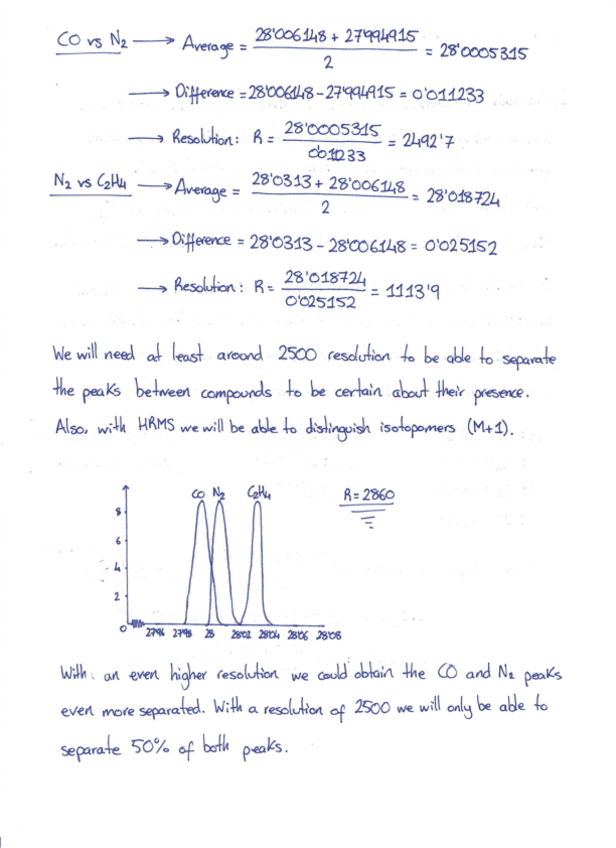 CO vs N₂ → Average = (28'006148 + 27'994915) / 2 = 28'0005315
→ Difference = 28'006148 - 27'994915 = 0'011233
→ Resolution: R = 28'0005315 / 0'011233 = 2492'7
N₂ vs C₂H₄ → Average = (28'0313 + 28'006148) / 2 = 28'018724
→ Difference = 28'0313 - 28'006148 = 0'025152
→ Resolution: R = 28'018724 / 0'025152 = 1113'9
We will need at least around 2500 resolution to be able to separate
the peaks between compounds to be certain about their presence.
Also, with HRMS we will be able to distinguish isotopomers (M+1).
CO N₂ C₂H₄ R = 2860
8
6
4
2
0 27'96 27'98 28 28'02 28'04 28'06 28'08
With an even higher resolution we could obtain the CO and N₂ peaks
even more separated. With a resolution of 2500 we will only be able to
separate 50% of both peaks.